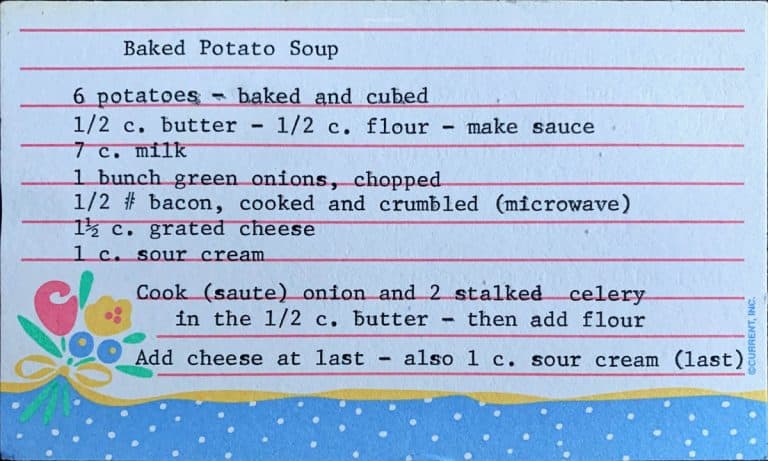 Baked Potato Soup
6 potatoes - baked and cubed
1/2 c. butter - 1/2 c. flour - make sauce
7 c. milk
1 bunch green onions, chopped
1/2 # bacon, cooked and crumbled (microwave)
1½ c. grated cheese
1 c. sour cream
Cook (saute) onion and 2 stalked celery
in the 1/2 c. butter - then add flour
Add cheese at last - also 1 c. sour cream (last)
©CURRENT, INC.